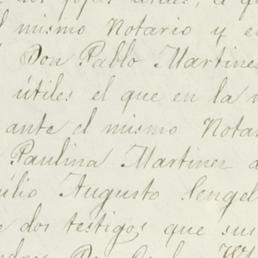 l mismo Notario y e
Don Pablo Martine
útiles el que en la
ante el mismo Nota
Paulina Martinez
ulio Augusto Lengel
dos testigos que su